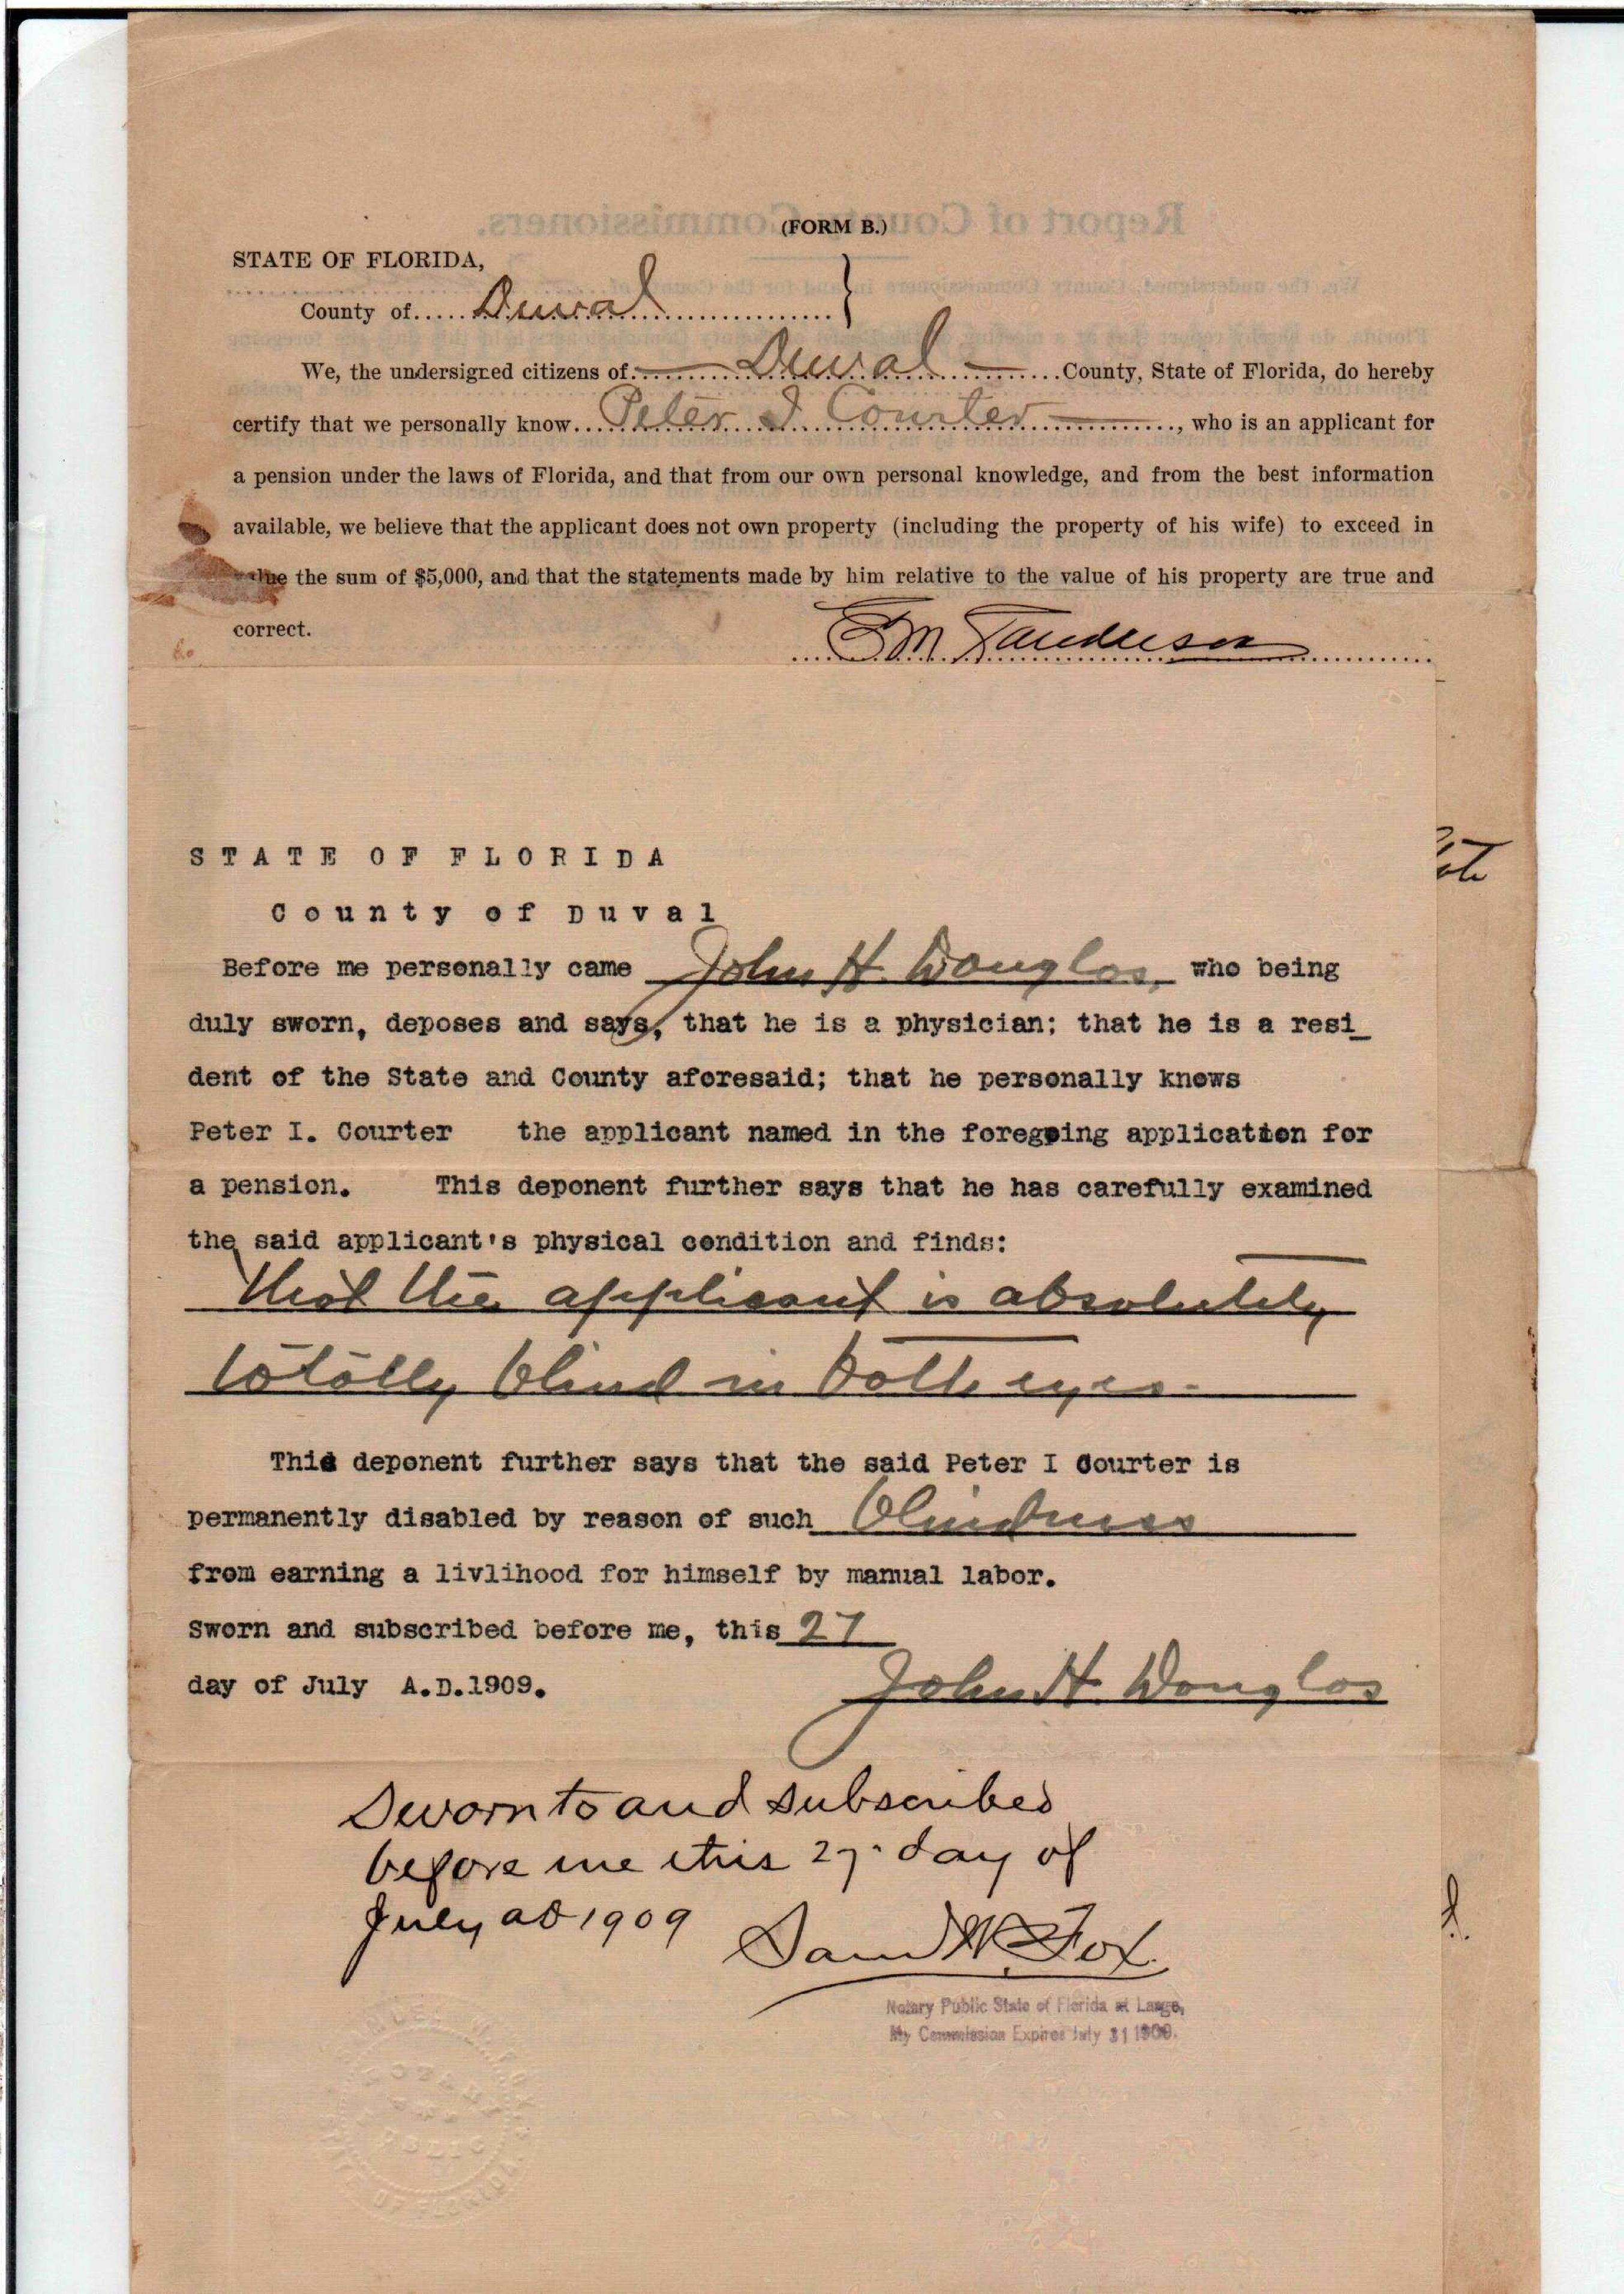 (FORM B.)
STATE OF FLORIDA,
County of Duval
We, the undersigned citizens of Duval County, State of Florida, do hereby
certify that we personally know Peter I Courter, who is an applicant for
a pension under the laws of Florida, and that from our own personal knowledge, and from the best information
available, we believe that the applicant does not own property (including the property of his wife) to exceed in
value the sum of $5,000, and that the statements made by him relative to the value of his property are true and
correct.
STATE OF FLORIDA
County of Duval
Before me personally came John H. Douglas, who being
duly sworn, deposes and says, that he is a physician; that he is a resi_
dent of the State and County aforesaid; that he personally knows
Peter I. Courter the applicant named in the foregoing application for
a pension. This deponent further says that he has carefully examined
the said applicant's physical condition and finds:
that the applicant is absolutely
totally blind in both eyes.
This deponent further says that the said Peter I Courter is
permanently disabled by reason of such blindness
from earning a livlihood for himself by manual labor.
Sworn and subscribed before me, this 27
day of July A.D.1909.
John H. Douglas
Sworn to and subscribed
before me this 27 day of
July AD 1909
Fox
Notary Public State of Florida at Large,
My Commission Expires July 31 1909.
NOTARY
PUBLIC
STATE OF FLORIDA